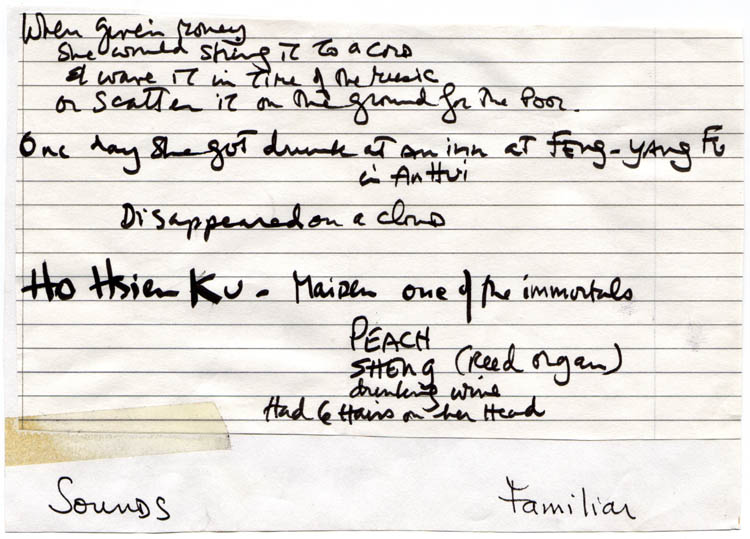 When given money
She would string it to a cord
& wave it in time of the music
or Scatter it on the ground for the Poor.
One day She got drunk at an inn at FEng-yAng Fu
in AnHui
Disappeared on a cloud
Ho Hsien Ku - Maiden one of the immortals
PEACH
SHEng (reed organ)
drinking wine
Had 6 Hairs on her Head
Sounds Familiar